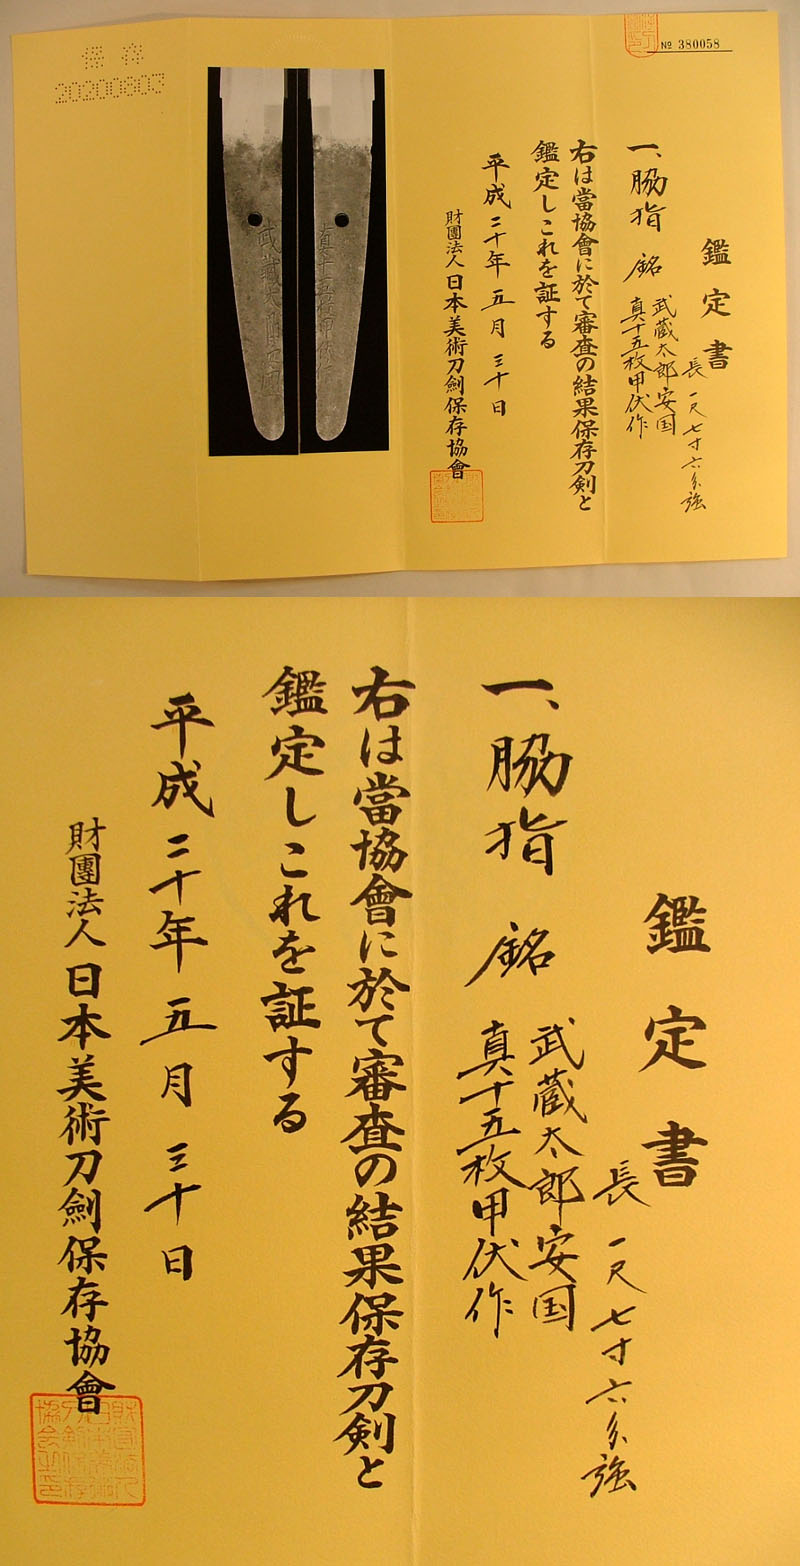 № 380058
鑑定書
長 一尺七寸六分強
一、脇指 銘 武蔵太郎安国
真十五枚甲伏作
右は當協會に於て審査の結果保存刀剣と
鑑定しこれを証する
平成二十年五月三十日
財團法人日本美術刀劍保存協會
保存
20200803
鑑定書
長 一尺七寸六分強
一、脇指 銘 武蔵太郎安国
真十五枚甲伏作
右は當協會に於て審査の結果保存刀剣と
鑑定しこれを証する
平成二十年五月三十日
財團法人日本美術刀劍保存協會